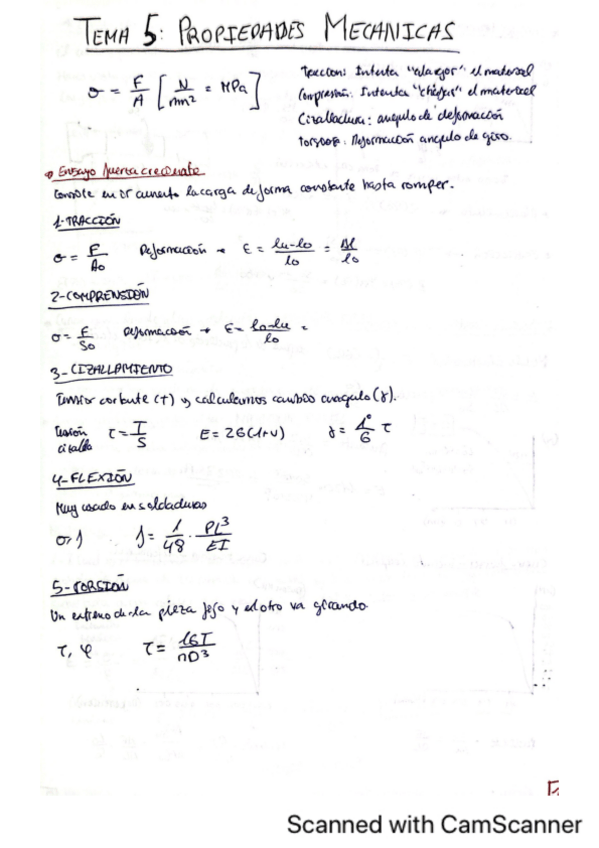 TEMA 5: PROPIEDADES MECANICAS
σ = F/A [N/mm² = MPa]
Traccion: Intenta "alargar" el material
Compresión: Intenta "chafar" el material
Cizalladura: angulo de deformación
Torsion: Deformación angulo de giro.
Ensayo fuerza creciente
Consiste en ir aumento la carga de forma constante hasta romper.
1-TRACCIÓN
σ = F/A₀ Deformación → ε = lu-lo/lo = Δl/lo
2-COMPRENSIÓN
σ = F/S₀ Deformación → ε = lo-lu/lo =
3-CIZALLAMIENTO
Tensior cortante (τ) y calculamos cambio angulo (γ).
Tensión cizalla τ = T/S E = 2G(1+ν) γ = 1/G τ
4-FLEXIÓN
Muy usado en soldaduras
σ, f f = 1/48 · PL³/EI
5-TORSIÓN
Un extremo de la pieza fijo y el otro va girando
τ, φ τ = 16T/πD³
Scanned with CamScanner